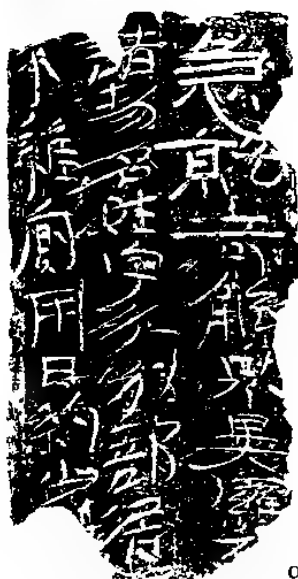 急就奇觚眾異羅列
諸物名姓字分別部居
不雜廁用日約少